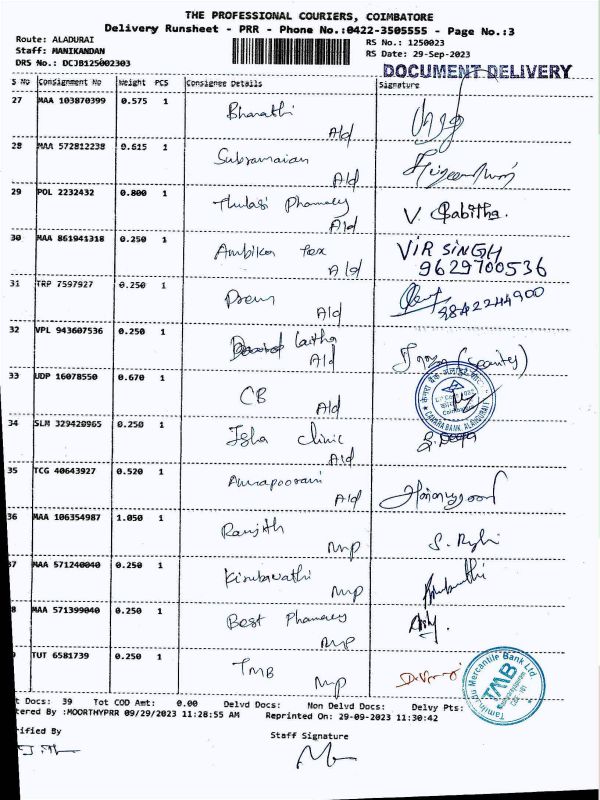 THE PROFESSIONAL COURIERS, COIMBATORE
Delivery Runsheet - PRR - Phone No.:0422-3505555 - Page No.:3
Route: ALADURAI
Staff: MANIKANDAN
DRS No.: DCJB125002303
RS No.: 1250023
RS Date: 29-Sep-2023
DOCUMENT DELIVERY
S No Consignment No Weight PCS Consignee Details Signature
27 MAA 103870399 0.575 1 Bharathi
Ald
28 MAA 572812238 0.615 1 Subramaian
Ald
29 POL 2232432 0.800 1 Thulasi Phamacy
Ald V. Sabitha.
30 MAA 861941318 0.250 1 Ambika Tex VIR SINGH
Ald 9629700536
31 TRP 7597927 0.250 1 Prem 9842244900
Ald
32 VPL 943607536 0.250 1 Laitha
Ald (Security)
33 UDP 16078550 0.670 1 CB
Ald
CANARA BANK, ALANDURAI
34 SLM 329420965 0.250 1 Isha clinic
Ald S. Deepa
35 TCG 40643927 0.520 1 Annapoorani
Ald
36 MAA 106354987 1.050 1 Ranjith
mp
37 MAA 571240040 0.250 1 Kirubavathi
mp
8 MAA 571399040 0.250 1 Best Phamacy
mp
TUT 6581739 0.250 1 TMB
mp
Tamilnadu Mercantile Bank Ltd.
TMB
t Docs: 39 Tot COD Amt: 0.00 Delvd Docs: Non Delvd Docs: Delvy Pts:
tered By :MOORTHYPRR 09/29/2023 11:28:55 AM Reprinted On: 29-09-2023 11:30:42
rified By Staff Signature